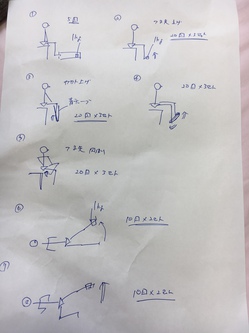 ①
5回
1kg
②
つま先上げ
1kg
20回×3セット
③
かかと上げ
20回×3セット
④
20回×3セット
⑤
20回×3セット
⑥
1kg
10回×2セット
⑦
10回×2セット